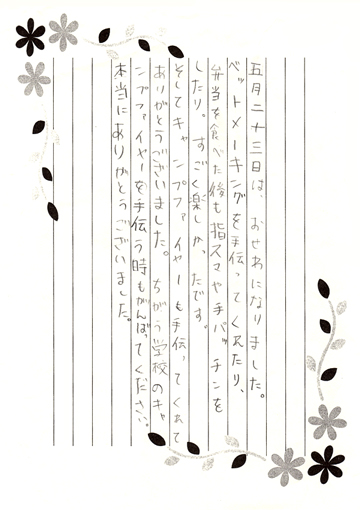 五月二十三日は、おせわになりました。
ベットメーキングを手伝ってくれたり、
弁当を食べた後も指スマや手パッチンを
したり。すごく楽しかったです。
そしてキャンプファイヤーも手伝ってくれて
ありがとうございました。ちがう学校のキャ
ンプファイヤーを手伝う時もがんばってください。
本当にありがとうございました。